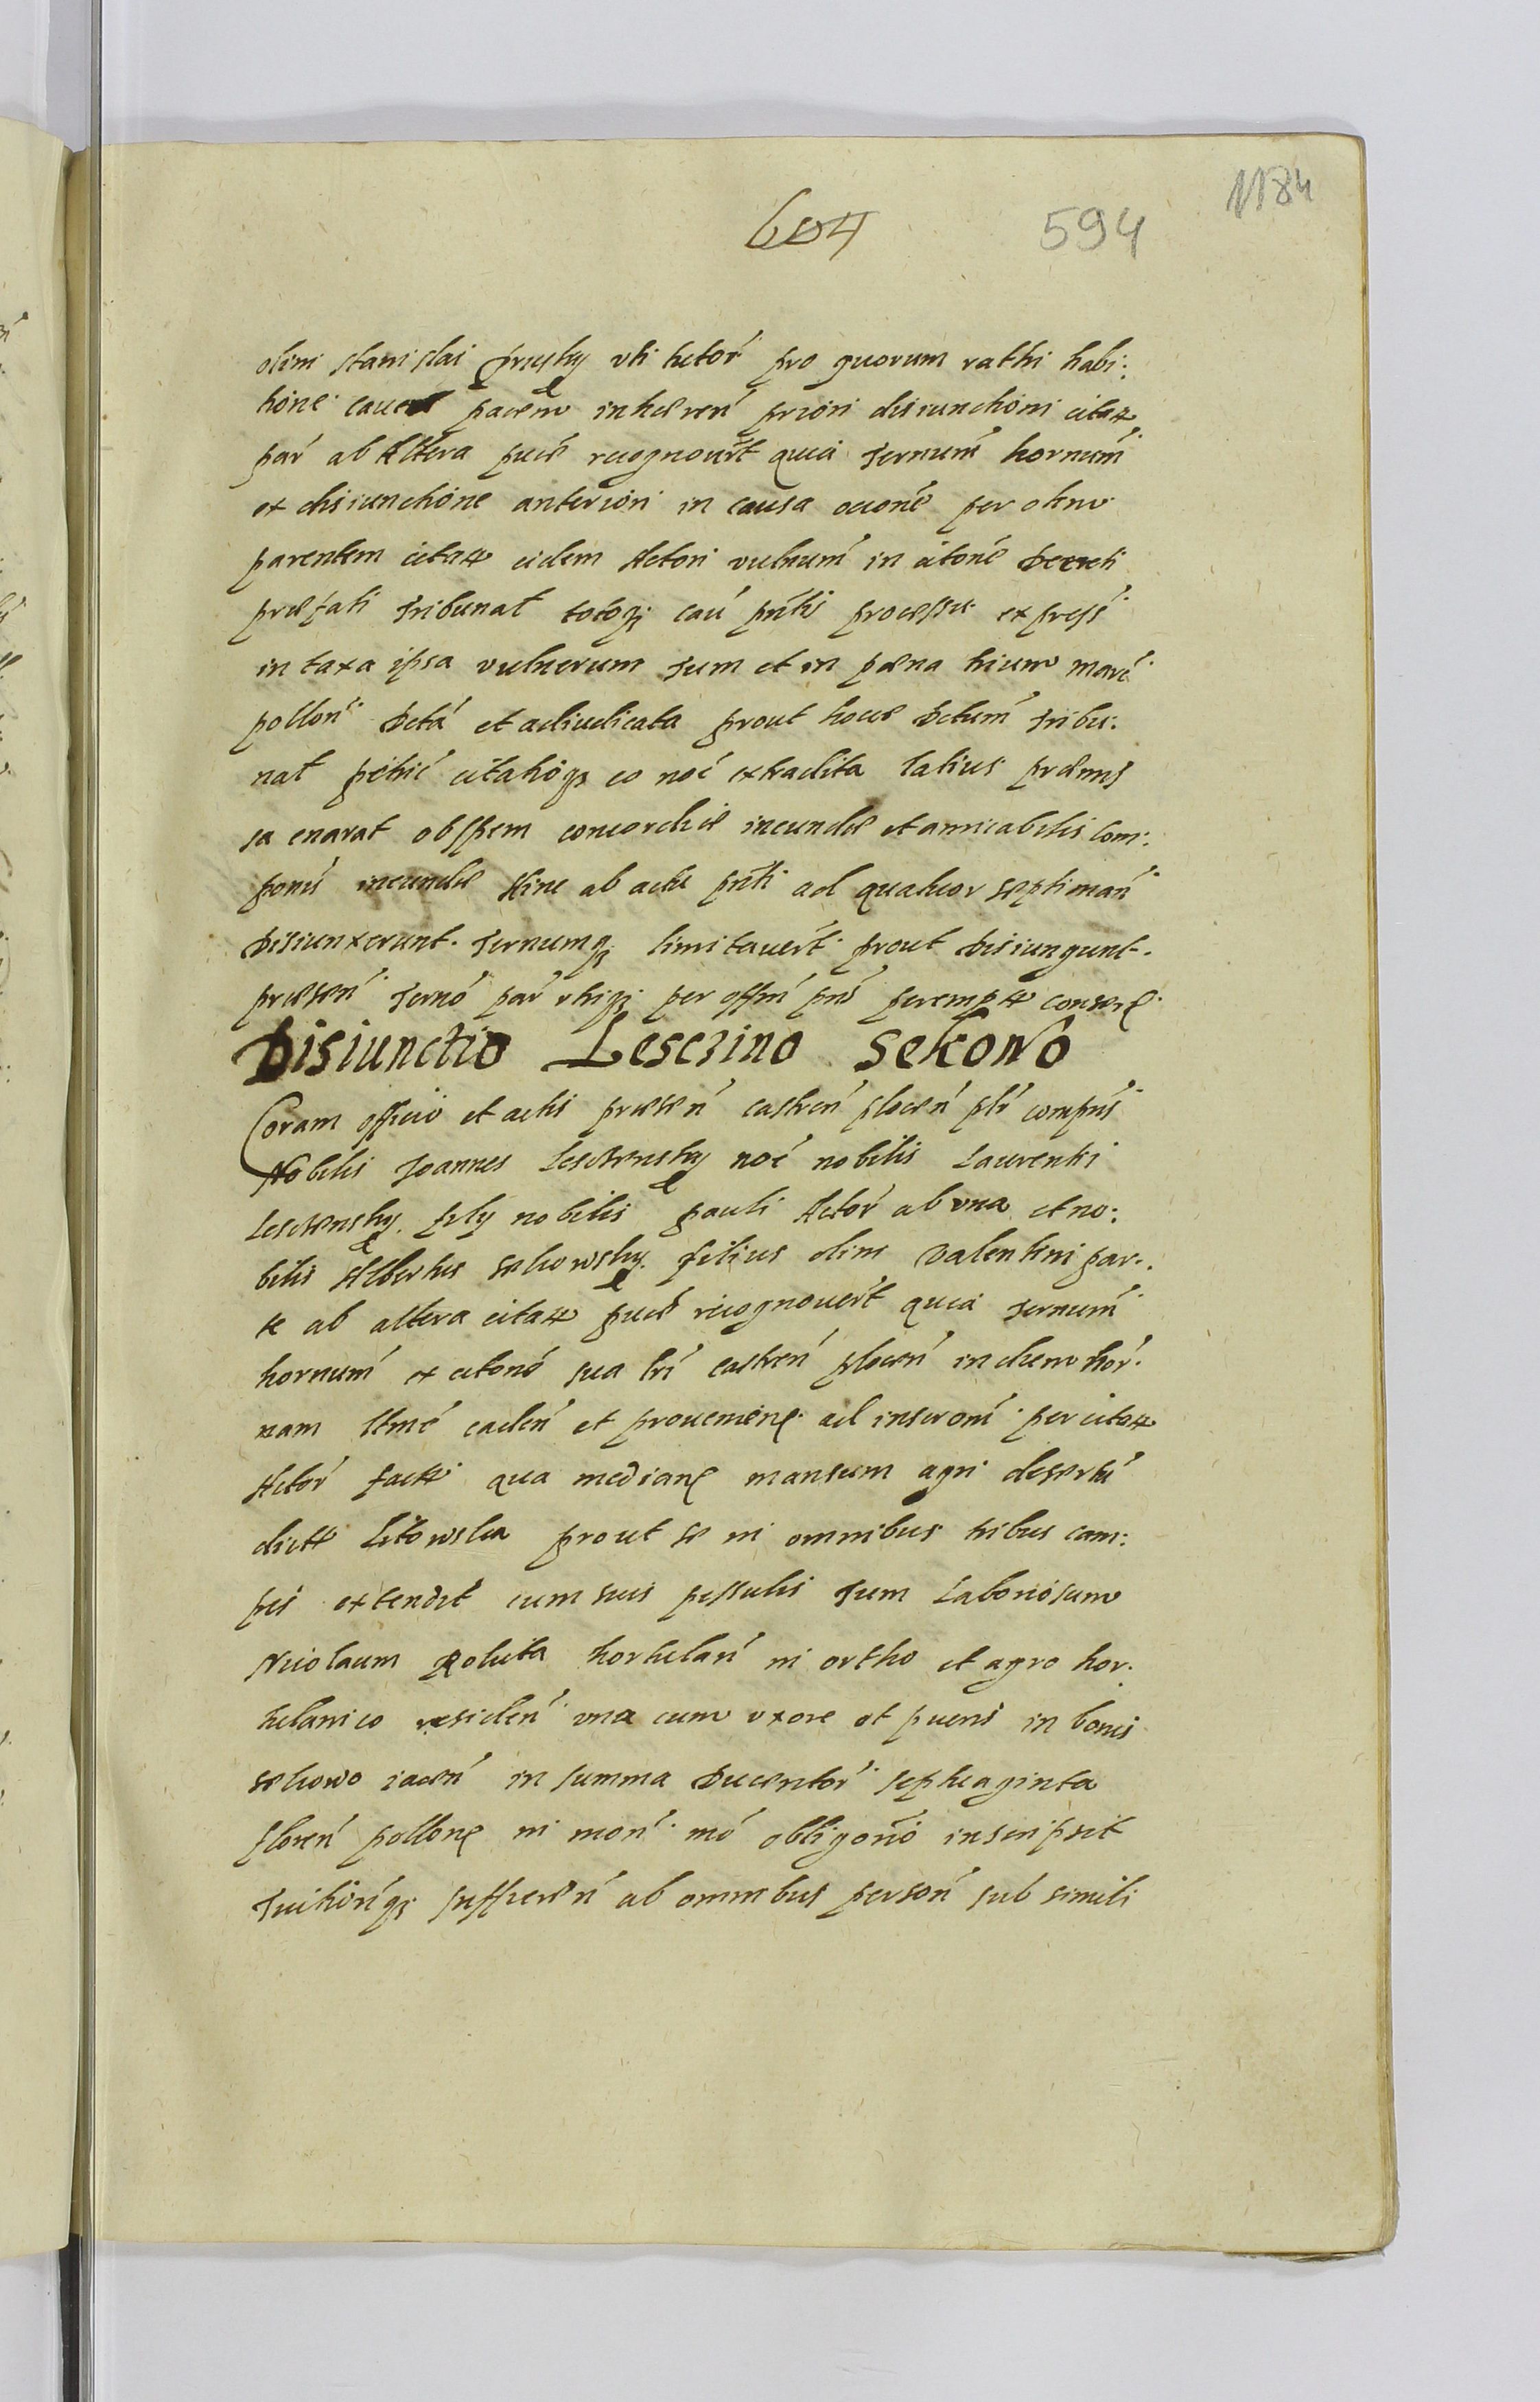 604 594 1184
olim Stanislai Pruski uti tutor pro quorum rathi habi:
tione cavet pacem inhaeren priori disiunctioni citat
par ab Altera pnce recognovert quia Termum hornum
ex disiunctione anteriori in causa per olim
parentem citat eidem Actori vulnum in citone Decreti
praefati Tribunal totoq; cau pntis processu express
in taxa ipsa vulnerum Tum et in paena trium marc
pollon et adiudicata prout hocce Tribu:
nal citatioq; eo noe extradita latius praemis
sa enarat ob spem concordiae ineundae et amicabilis Com:
ponis ineundae Hinc ab actu pnti ad quatuor septiman
Disiunxerunt. Termumq; limitavert prout Disiungunt.
praesen Termo par utriq; per offm pns peremp conser
Disiunctio Lesczino Sekowo
Coram officio et actis praesen castren plocen plr compns
Nobilis Joannes Lesczensky noe nobilis Laurenti
Lesczensky fily nobilis pauli Actor ab una et no:
bilis Albertus Sekowsky filius olim Valentini par:
te ab altera citat pnce recognovert quia Termum
hornum ex citone sua lri castren plocen in diem hor
nam ltme caden et provenien ad inscronm per citat
Actor fact qua median mansum agri deserti
dict Litowska prout se in omnibus tribus cam:
pis extendit cum suis pessulis Tum Laboriosum
Nicolaum hortulan in ortho et agro hor:
tulanico residen una cum uxore et pueris in bonis
Sekowo iacen in summa Ducentor septuaginta
floren pollon in mon mo obligorio inscripsit
Tuitionq; sufficien ab omnibus person sub simili